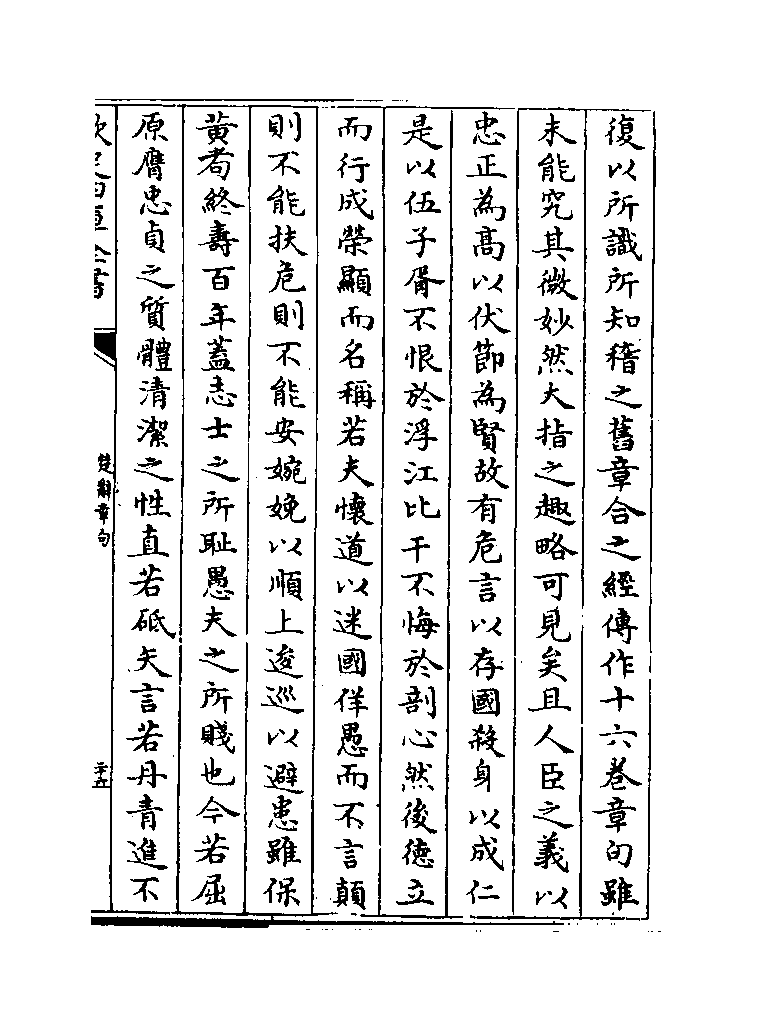 復以所識所知稽之舊章合之經傳作十六卷章句雖
未能究其微妙然大指之趣略可見矣且人臣之義以
忠正為髙以伏節為賢故有危言以存國殺身以成仁
是以伍子胥不恨於浮江比干不悔於剖心然後徳立
而行成榮顯而名稱若夫懷道以迷國佯愚而不言顛
則不能扶危則不能安婉娩以順上逡巡以避患雖保
黄耇終壽百年蓋志士之所恥愚夫之所賤也今若屈
原膺忠貞之質體清潔之性直若砥矢言若丹青進不
欽定四庫全書
楚辭章句
二十五